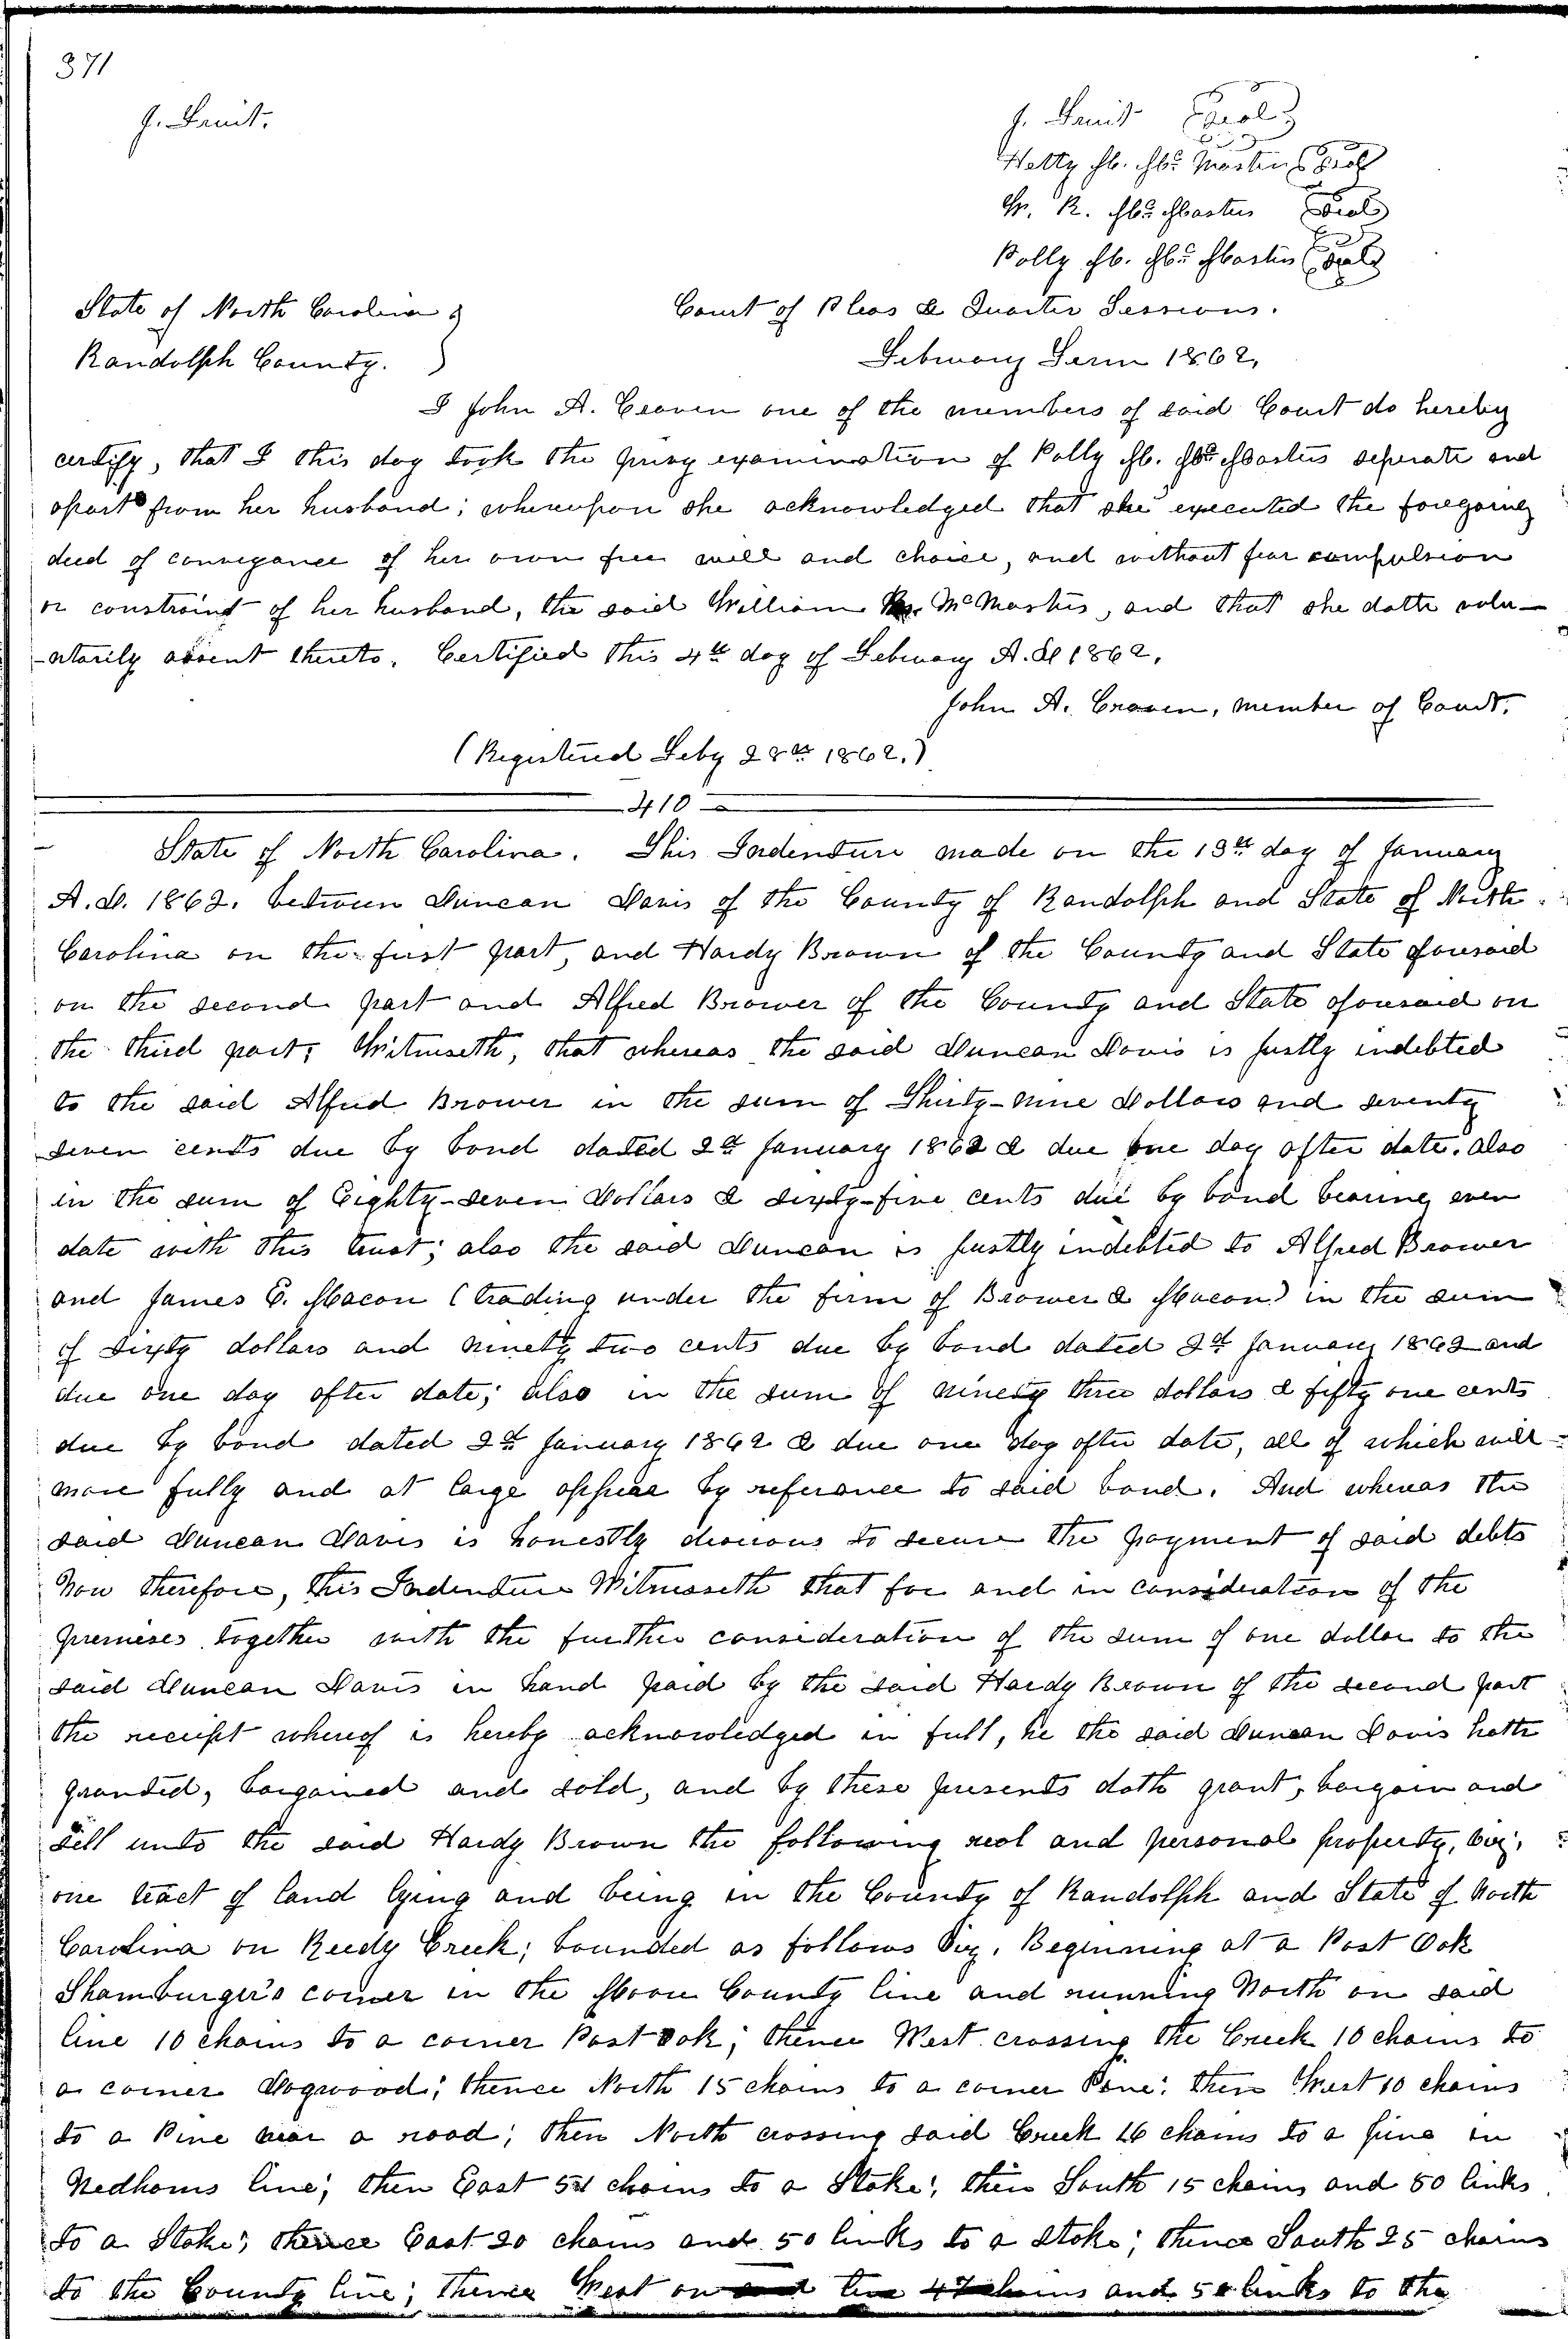 371
J. Fruit.
J. Fruit (Seal)
Hetty M. Mc Masters (Seal)
W. R. Mc Masters (Seal)
Polly M. Mc Masters (Seal)
State of North Carolina }
Court of Pleas & Quarter Sessions.
Randolph County. }
February Term 1862,
I John A. Craven one of the members of said Court do hereby
certify, that I this day took the privy examination of Polly M. Mc Masters seperate and
apart from her husband; whereupon she acknowledged that she executed the foregoing
deed of conveyance of her own free will and choice, and without fear compulsion
or constraint of her husband, the said William McMasters, and that she doth volu-
-ntarily assent thereto. Certified this 4th day of February A.D 1862.
John A. Craven, member of Court.
(Registered Feby 28th 1862.)
410
State of North Carolina. This Indenture made on the 13th day of January
A.D. 1862. between Duncan Davis of the County of Randolph and State of North
Carolina on the first part, and Hardy Brown of the County and State aforesaid
on the second part and Alfred Brower of the County and State aforesaid on
the third part; Witnesseth, that whereas the said Duncan Davis is justly indebted
to the said Alfred Brower in the sum of Thirty-nine Dollars and seventy
seven cents due by bond dated 2d January 1862 & due one day after date. also
in the sum of Eighty-seven Dollars & sixty-five cents due by bond bearing even
date with this trust; also the said Duncan is justly indebted to Alfred Brower
and James E. Macon (trading under the firm of Brower & Macon) in the sum
of sixty dollars and ninety two cents due by bond dated 2d January 1862 and
due one day after date; also in the sum of ninety three dollars & fifty one cents
due by bond dated 2d January 1862 & due one day after date, all of which will
more fully and at large appear by reference to said bond. And whereas the
said Duncan Davis is honestly desirous to secure the payment of said debts
Now therefore, this Indenture Witnesseth that for and in consideration of the
premises together with the further consideration of the sum of one dollar to the
said Duncan Davis in hand paid by the said Hardy Brown of the second part
the receipt whereof is hereby acknowledged in full, he the said Duncan Davis hath
granted, bargained and sold, and by these presents doth grant, bargain and
sell unto the said Hardy Brown the following real and personal property, viz;
one tract of land lying and being in the County of Randolph and State of North
Carolina on Reedy Creek; bounded as follows Viz. Beginning at a Post Oak
Shamburger's corner in the Moore County line and running North on said
line 10 chains to a corner Post Oak; thence West crossing the Creek 10 chains to
a corner Dogwood; thence North 15 chains to a corner Pine; then West 10 chains
to a Pine near a road; then North crossing said Creek 16 chains to a pine in
Nedhams line; then East 51 chains to a Stake; then South 15 chains and 50 links
to a Stake; thence East 20 chains and 50 links to a stake; thence South 25 chains
to the County line; thence West on line 47 chains and 50 links to the